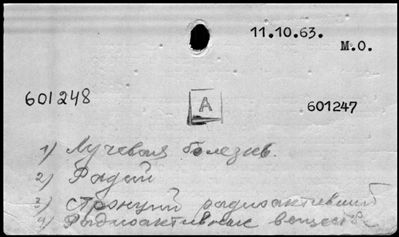 11.10.63.
М.О.
601248
А
601247
1) Лучевая болезнь.
2) Радий
3) Стронций радиоактивный
4) Радиоактивные веществ